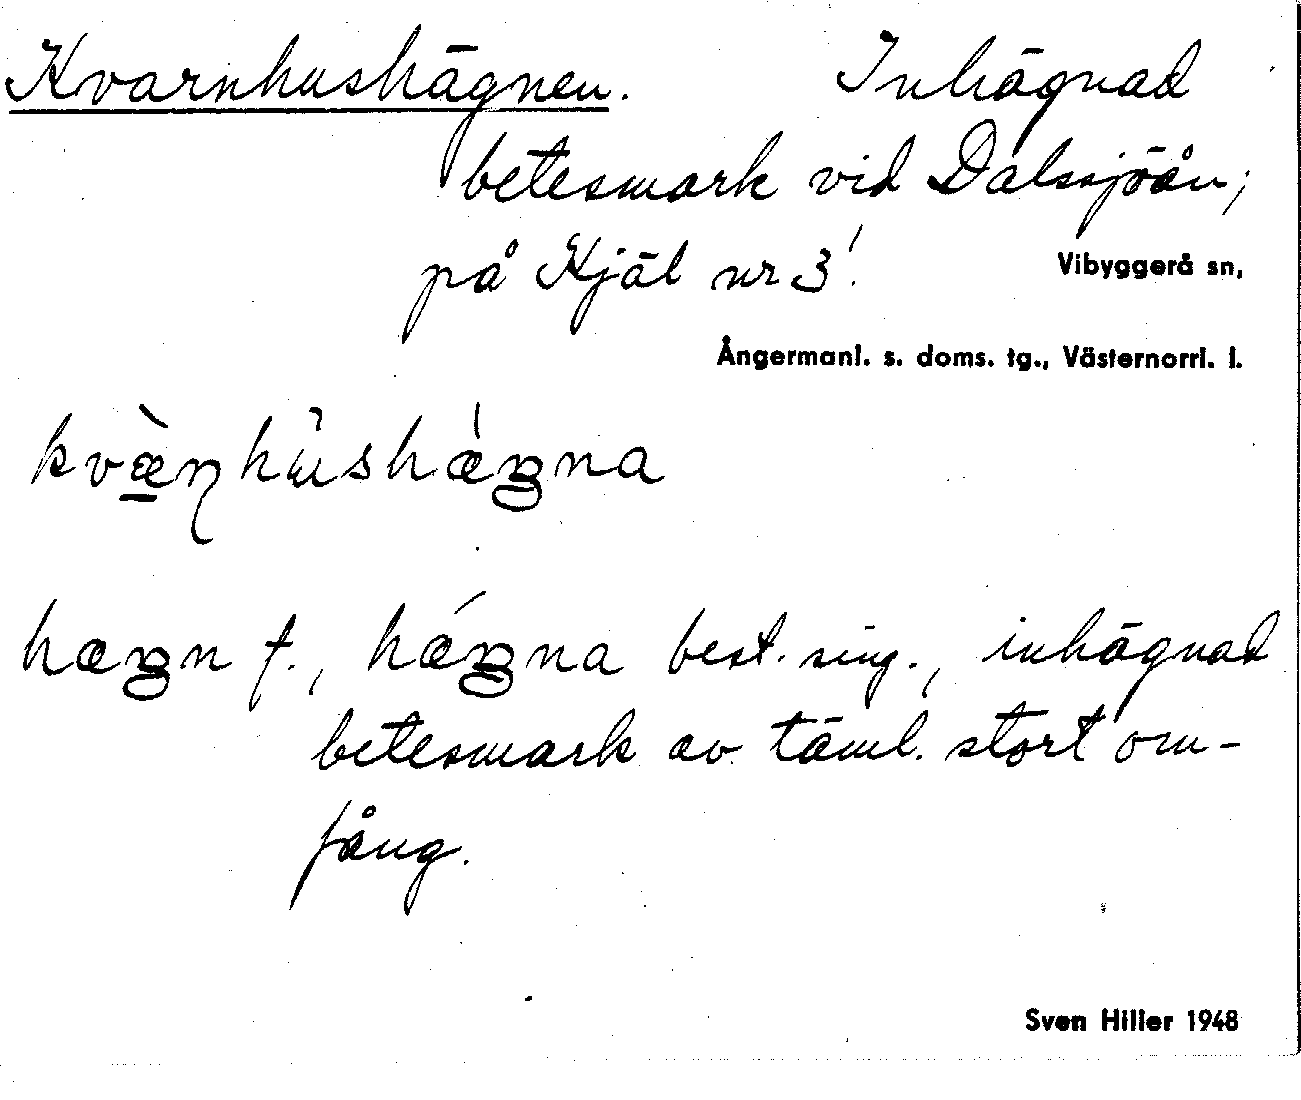 Kvarnhushägnen. Inhägnad
betesmark vid Dalssjöån;
på Kjäl nr 3!
Vibyggerå sn,
Ångermanl. s. doms. tg., Västernorrl. l.
kvæ̀ɳhùshǽŋna
hæŋn f., hǽŋna best. sing., inhägnad
betesmark av täml. stort om-
fång.
Sven Hiller 1948